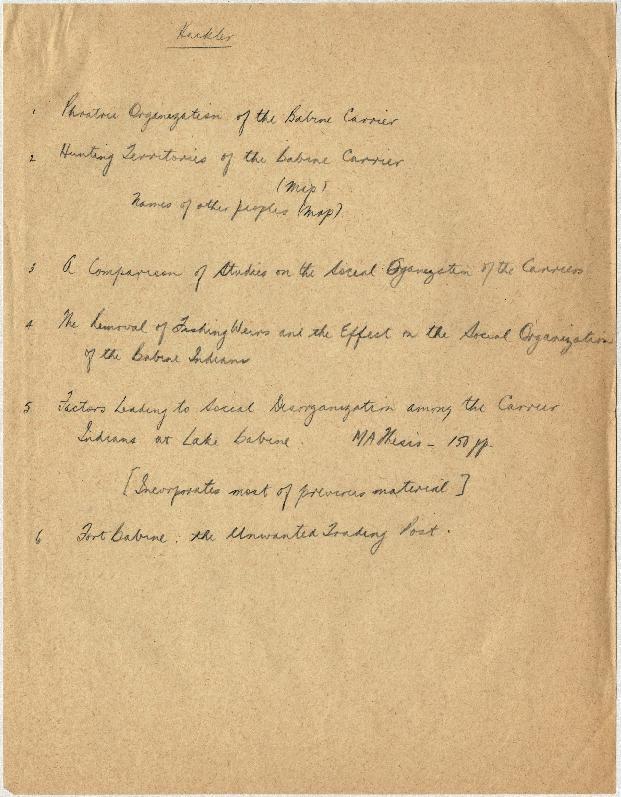 Hackler
1 Phratric Organization of the Babine Carrier
2 Hunting Territories of the Babine Carrier
(Map)
Names of other peoples (Map)
3 A Comparison of Studies on the Social Organization of the Carriers
4 The Removal of Fishing Weirs and the Effect on the Social Organization
of the Babine Indians
5 Factors Leading to Social Disorganization among the Carrier
Indians at Lake Babine. MA Thesis - 150 pp.
[Incorporates most of previous material]
6 Fort Babine: the Unwanted Trading Post.